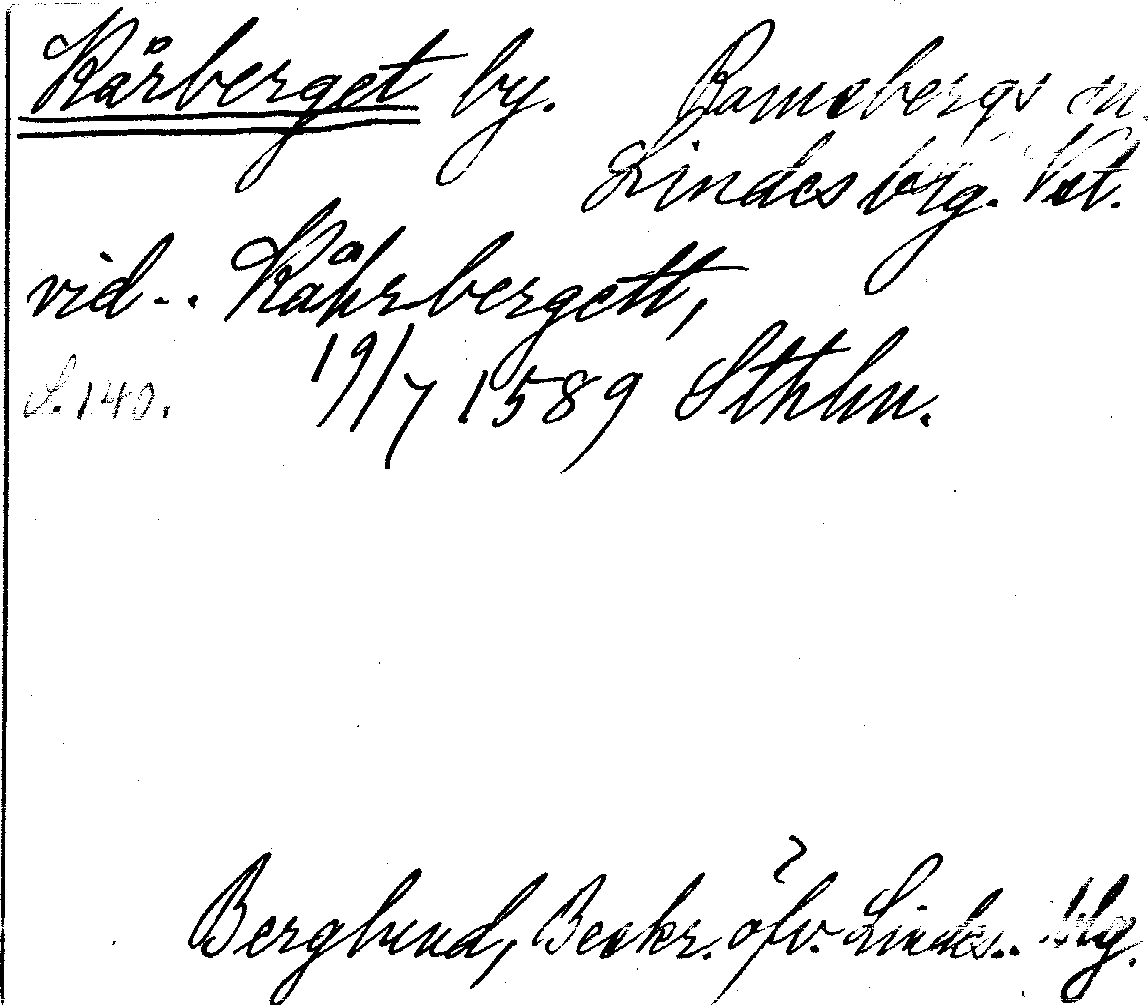 Kårberget by. Ramsbergs sn.
Lindes brg. Vst.
vid -. Kåhrbergett,
S. 140. 19/7 1589 Sthlm.
Berglund, Beskr. öfv. Lindes.. blg.